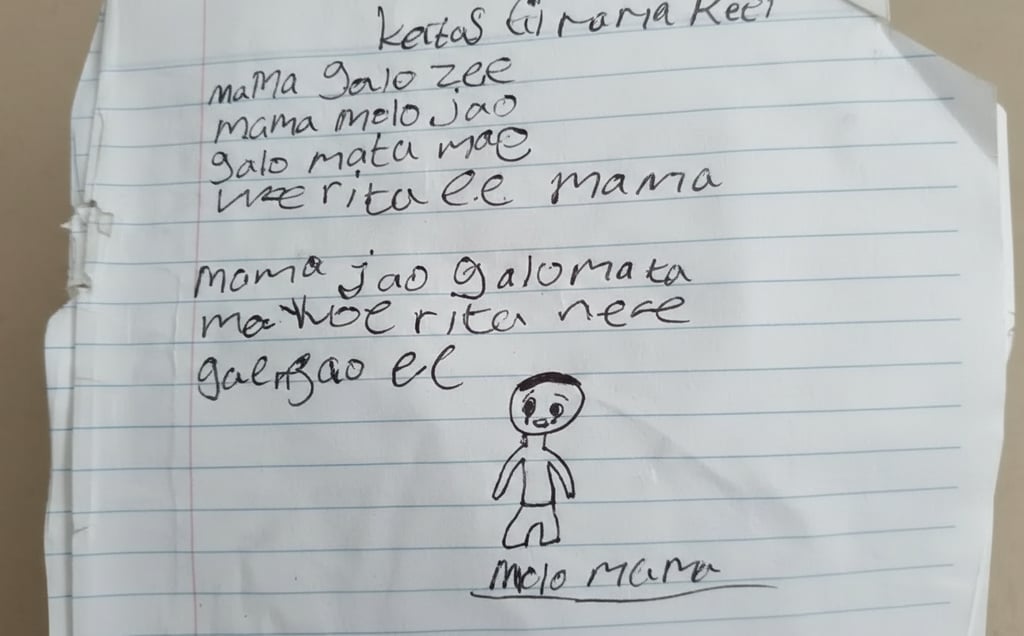 kertas tii mama Reti
mama galo zee
mama molo jao
galo mata mae
woe rita ee mama
mama jao galo mata
mae woe rita nere
gae ngao ee
molo mama